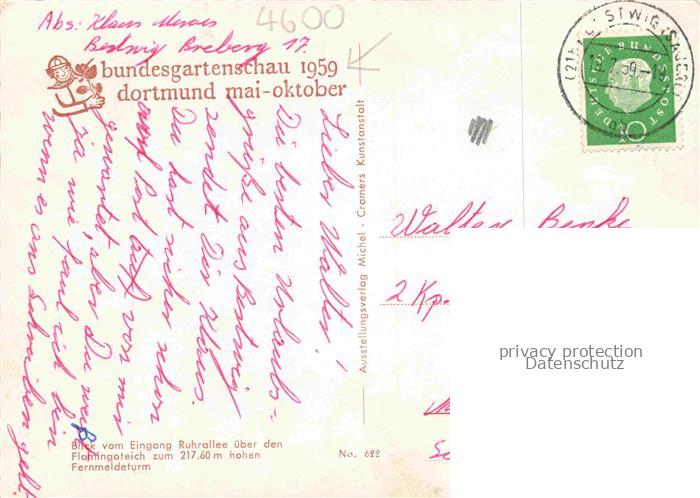 4600
Abs: Klaus
Bestwig Breberg 17.
bundesgartenschau 1959
dortmund mai-oktober
Lieber Walter!
Die besten Urlaubs-
grüße aus Bestwig
sendet Dir Klaus.
Du hast sicher schon
auf Post von mir
gewartet, aber Du weißt
ja wie faul ich bin
wenn es ans Schreiben geht.
Blick vom Eingang Ruhrallee über den
Flamingoteich zum 217,60 m hohen
Fernmeldeturm
No. 622
Ausstellungsverlag Michel - Cramers Kunstanstalt
STWIG (SAUERL)
59
DEUTSCHE BUNDESPOST
10
Walter Benke
2 Kp.
privacy protection
Datenschutz